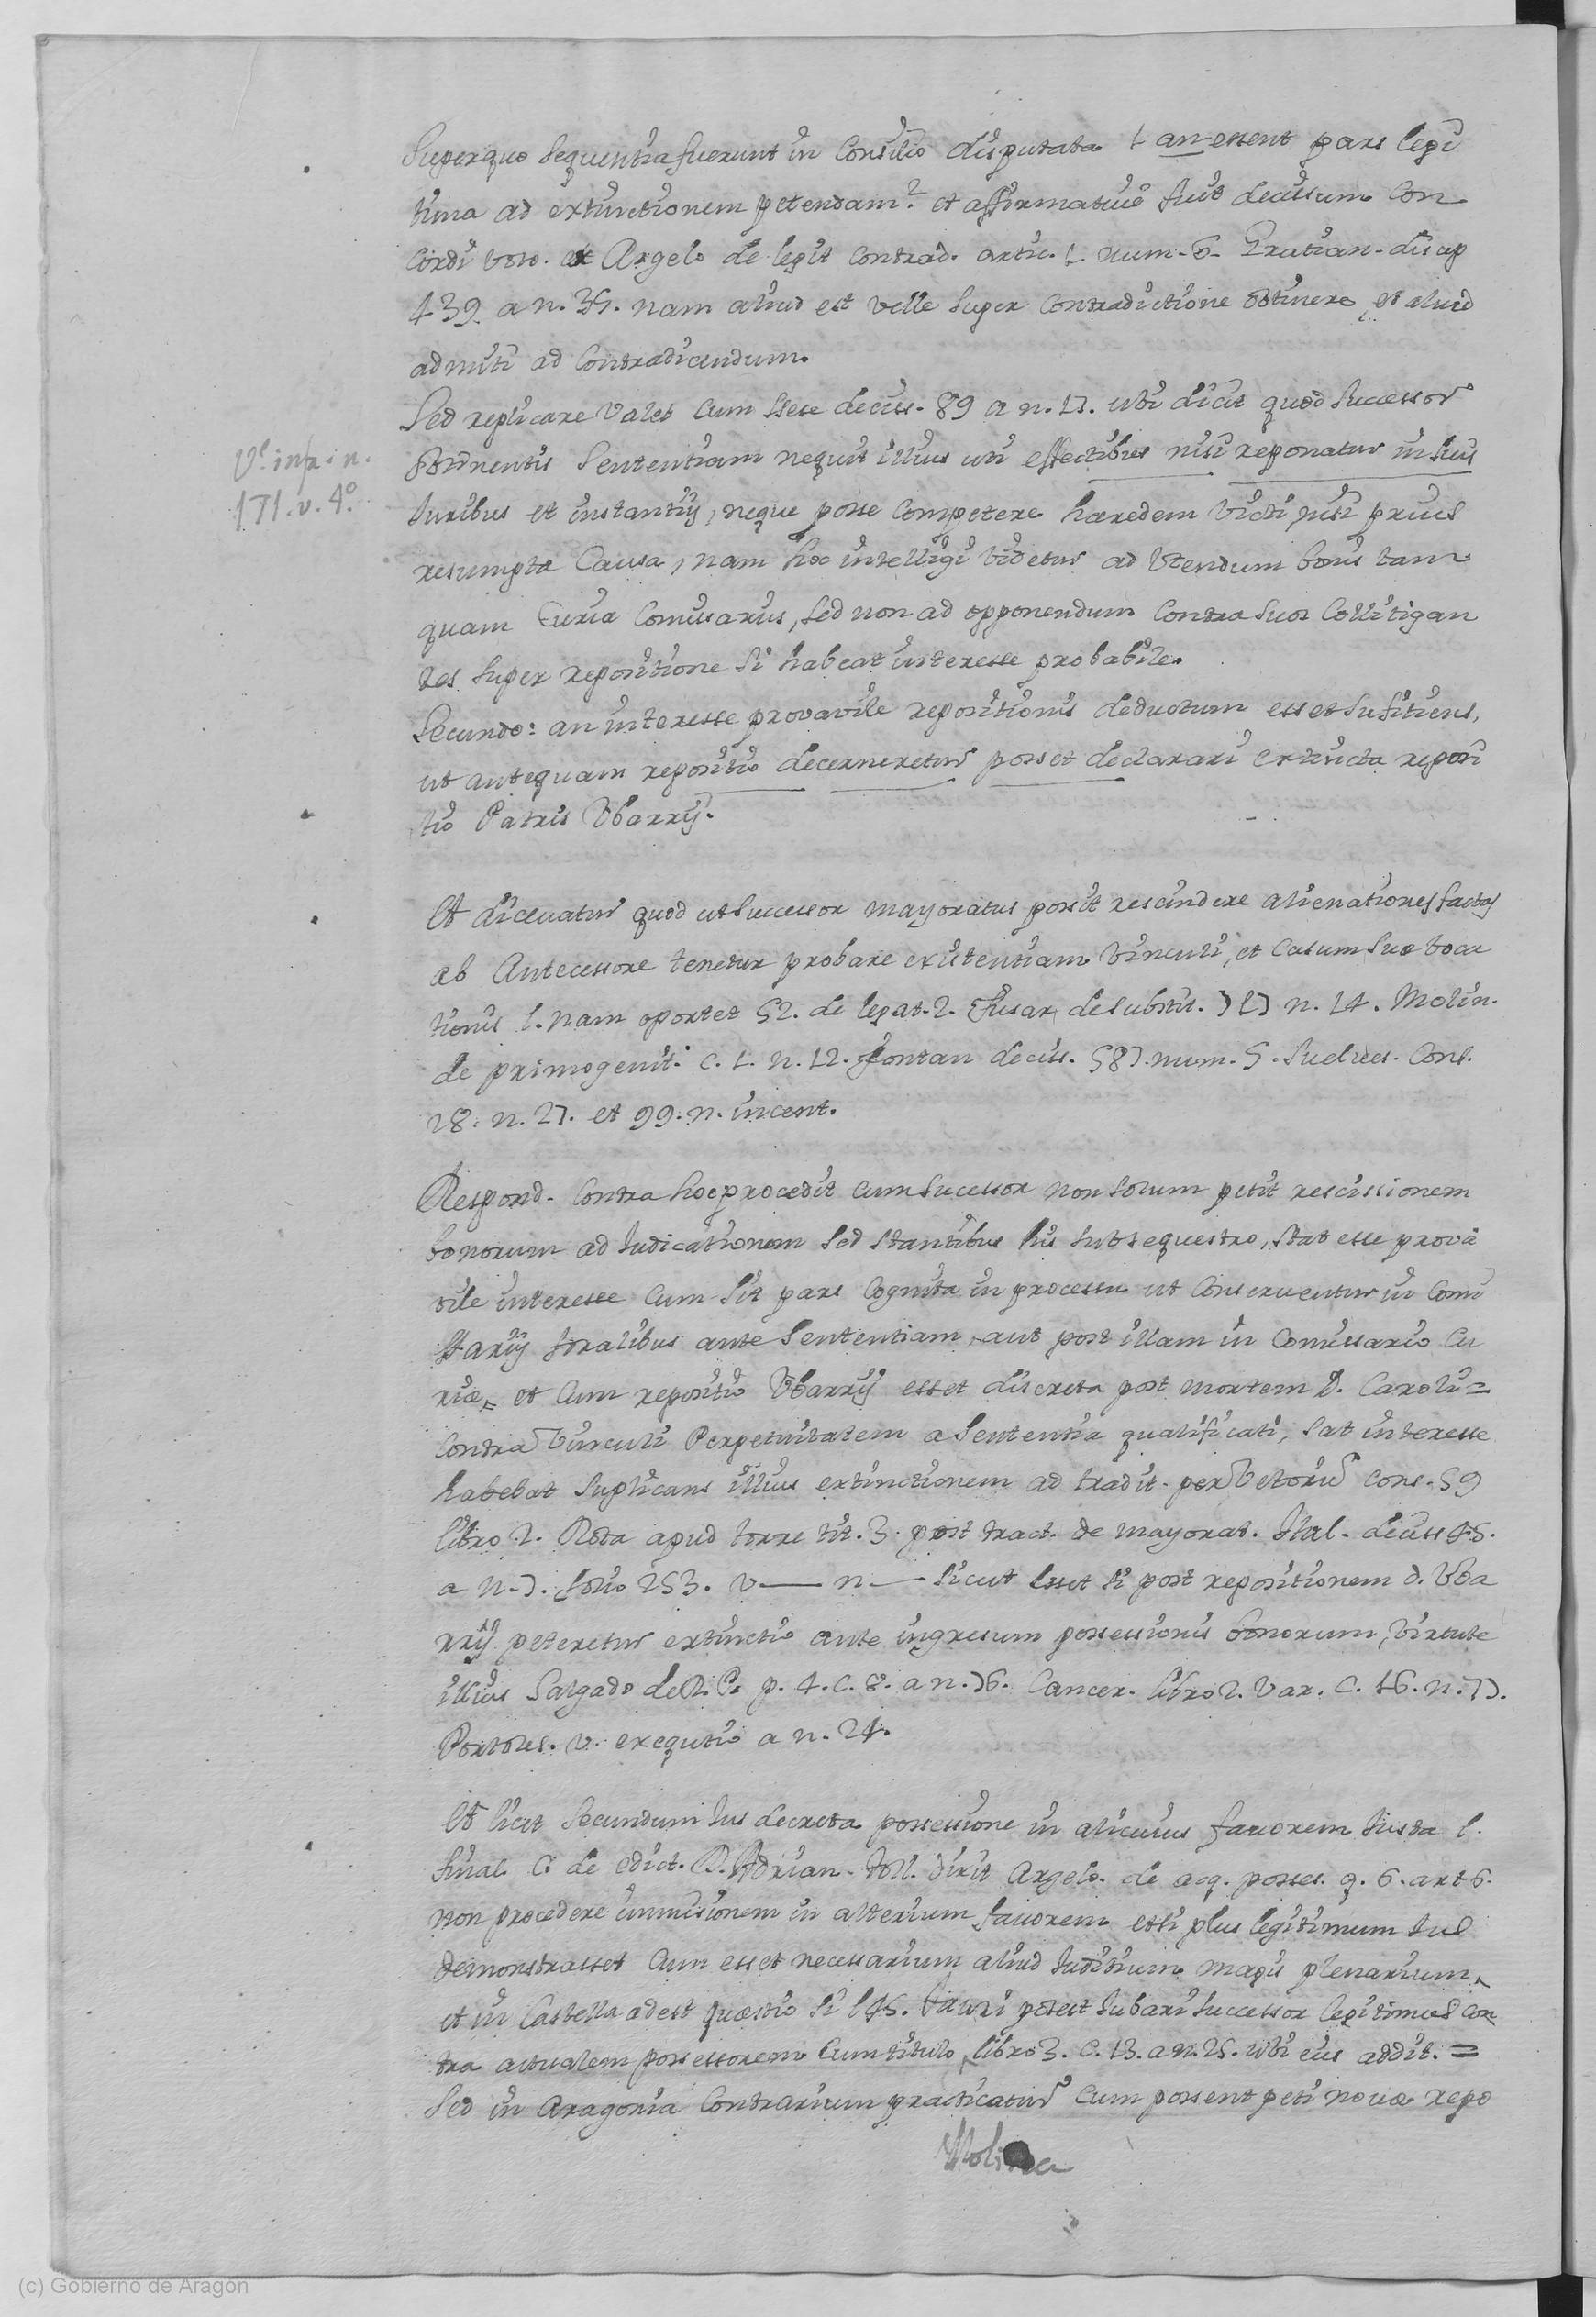 Superquo sequentia fuerunt in Consilio disputata 1 an essent pars legi
tima ad extinctionem petendam? et affirmative fuit decisum Con
cordi voto. ex Argelo de legit contrad. artic. 1. num. 6. Gratian. discep
439 a n. 35. nam aliud est velle super Contradictione obtinere, et aliud
admiti ad Contradicendum.
Sed replicare valet cum Sese deciss. 89 a n. 17. ubi dicit quod successor
Vᵉ. infr. n.
171. v. 4º
obtinentis Sententiam nequit illius uti effectibus nisi reponatur in suis
Iuribus et instantiis, neque posse Competere haredem victi nisi prius
resumpta Causa, nam hoc intelligi videtur ad Vtendum bonis tam
quam Curia Comissarius, sed non ad opponendum Contra suos Collitigan
tes super repositione si habeat interesse probabile.
Secundo: an interesse provavile repositionis deductum esset sufitiens,
ut antequam repositio decerneretur posset declarari extincta reposi
tio Patris Vbarrij.
Et dicevatur quod ut Successor mayoratus possit rescindere alienationes factas
ab Antecessore tenetur probare existentiam Vinculi, et Casum suæ voca
tionis l. nam oportet 52. de legat. 2. Fusar. de substit. n. 14. Molin.
de primogenit. c. 1. n. 12. Fontan deciss. 587. num. 5. Suelves. Cons.
28. n. 27. et 99. n. incent.
Respond. Contra hoc procedit cum sucessor non solum petit rescissionem
bonorum ad Iudicationem sed stantibus his sub sequestro, stat esse prova
vile interesse Cum sit pars Cognita in processu ut Conserventur in Comi
ssariis foralibus ante Sententiam, aut post illam in Comissario Cu
riæ, et Cum repositio Vbarrij esset discreta post mortem D. Caroli =
Contra Vinculi Perpetuitatem a Sententia qualificati, sat interesse
habebat Suplicans illius extinctionem ad tradit. per Vetoriu Cons. 59
libro 2. Rota apud torre tit. 3. post tract. de mayorat. Ital. deciss 45.
a n. 7. folio 253. v — n — sicut esset si post repositionem d. Vba
rrij peteretur extinctio ante ingresum possessionis bonorum, virtute
illius Salgado de R. P. p. 4. c. 8. a n. 76. Cancer. libro 2. Var. c. 16. n. 77.
Portoles. v. exequtio a n. 24.
Et licet Secundum Ius decreta possessione in alicuius favorem Iusta l.
final. C. de edict. D. Adrian. toll. dixit Argelo. de acq. posses. q. 6. art 6.
non procedere inmisionem in alterium favorem etsi plus legitimum Ius
demonstrasset Cum esset necessarium aliud Iuditium magis plenarium,
et in Castella adest quæstio si l 45. tauri potest Iubari successor legitimus con
tra actualem possessorem Cum titulo, libro 3. c. 13. a n. 25. ubi eius addit. =
Sed in Aragonia Contrarium practicatur Cum possent peti novæ repo
Molina
(c) Gobierno de Aragón